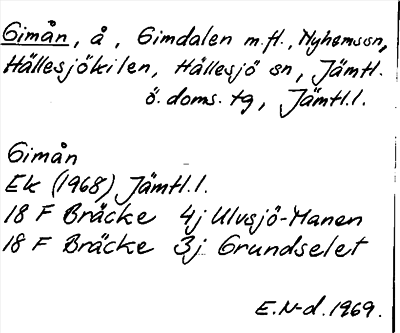 Gimån, å, Gimdalen m.fl., Nyhems sn,
Hällesjökilen, Hällesjö sn, Jämtl.
ö. doms. tg, Jämtl.l.
Gimån
Ek (1968) Jämtl.l.
18 F Bräcke 4j Ulvsjö-Manen
18 F Bräcke 3j Grundselet
E.N-d. 1969.